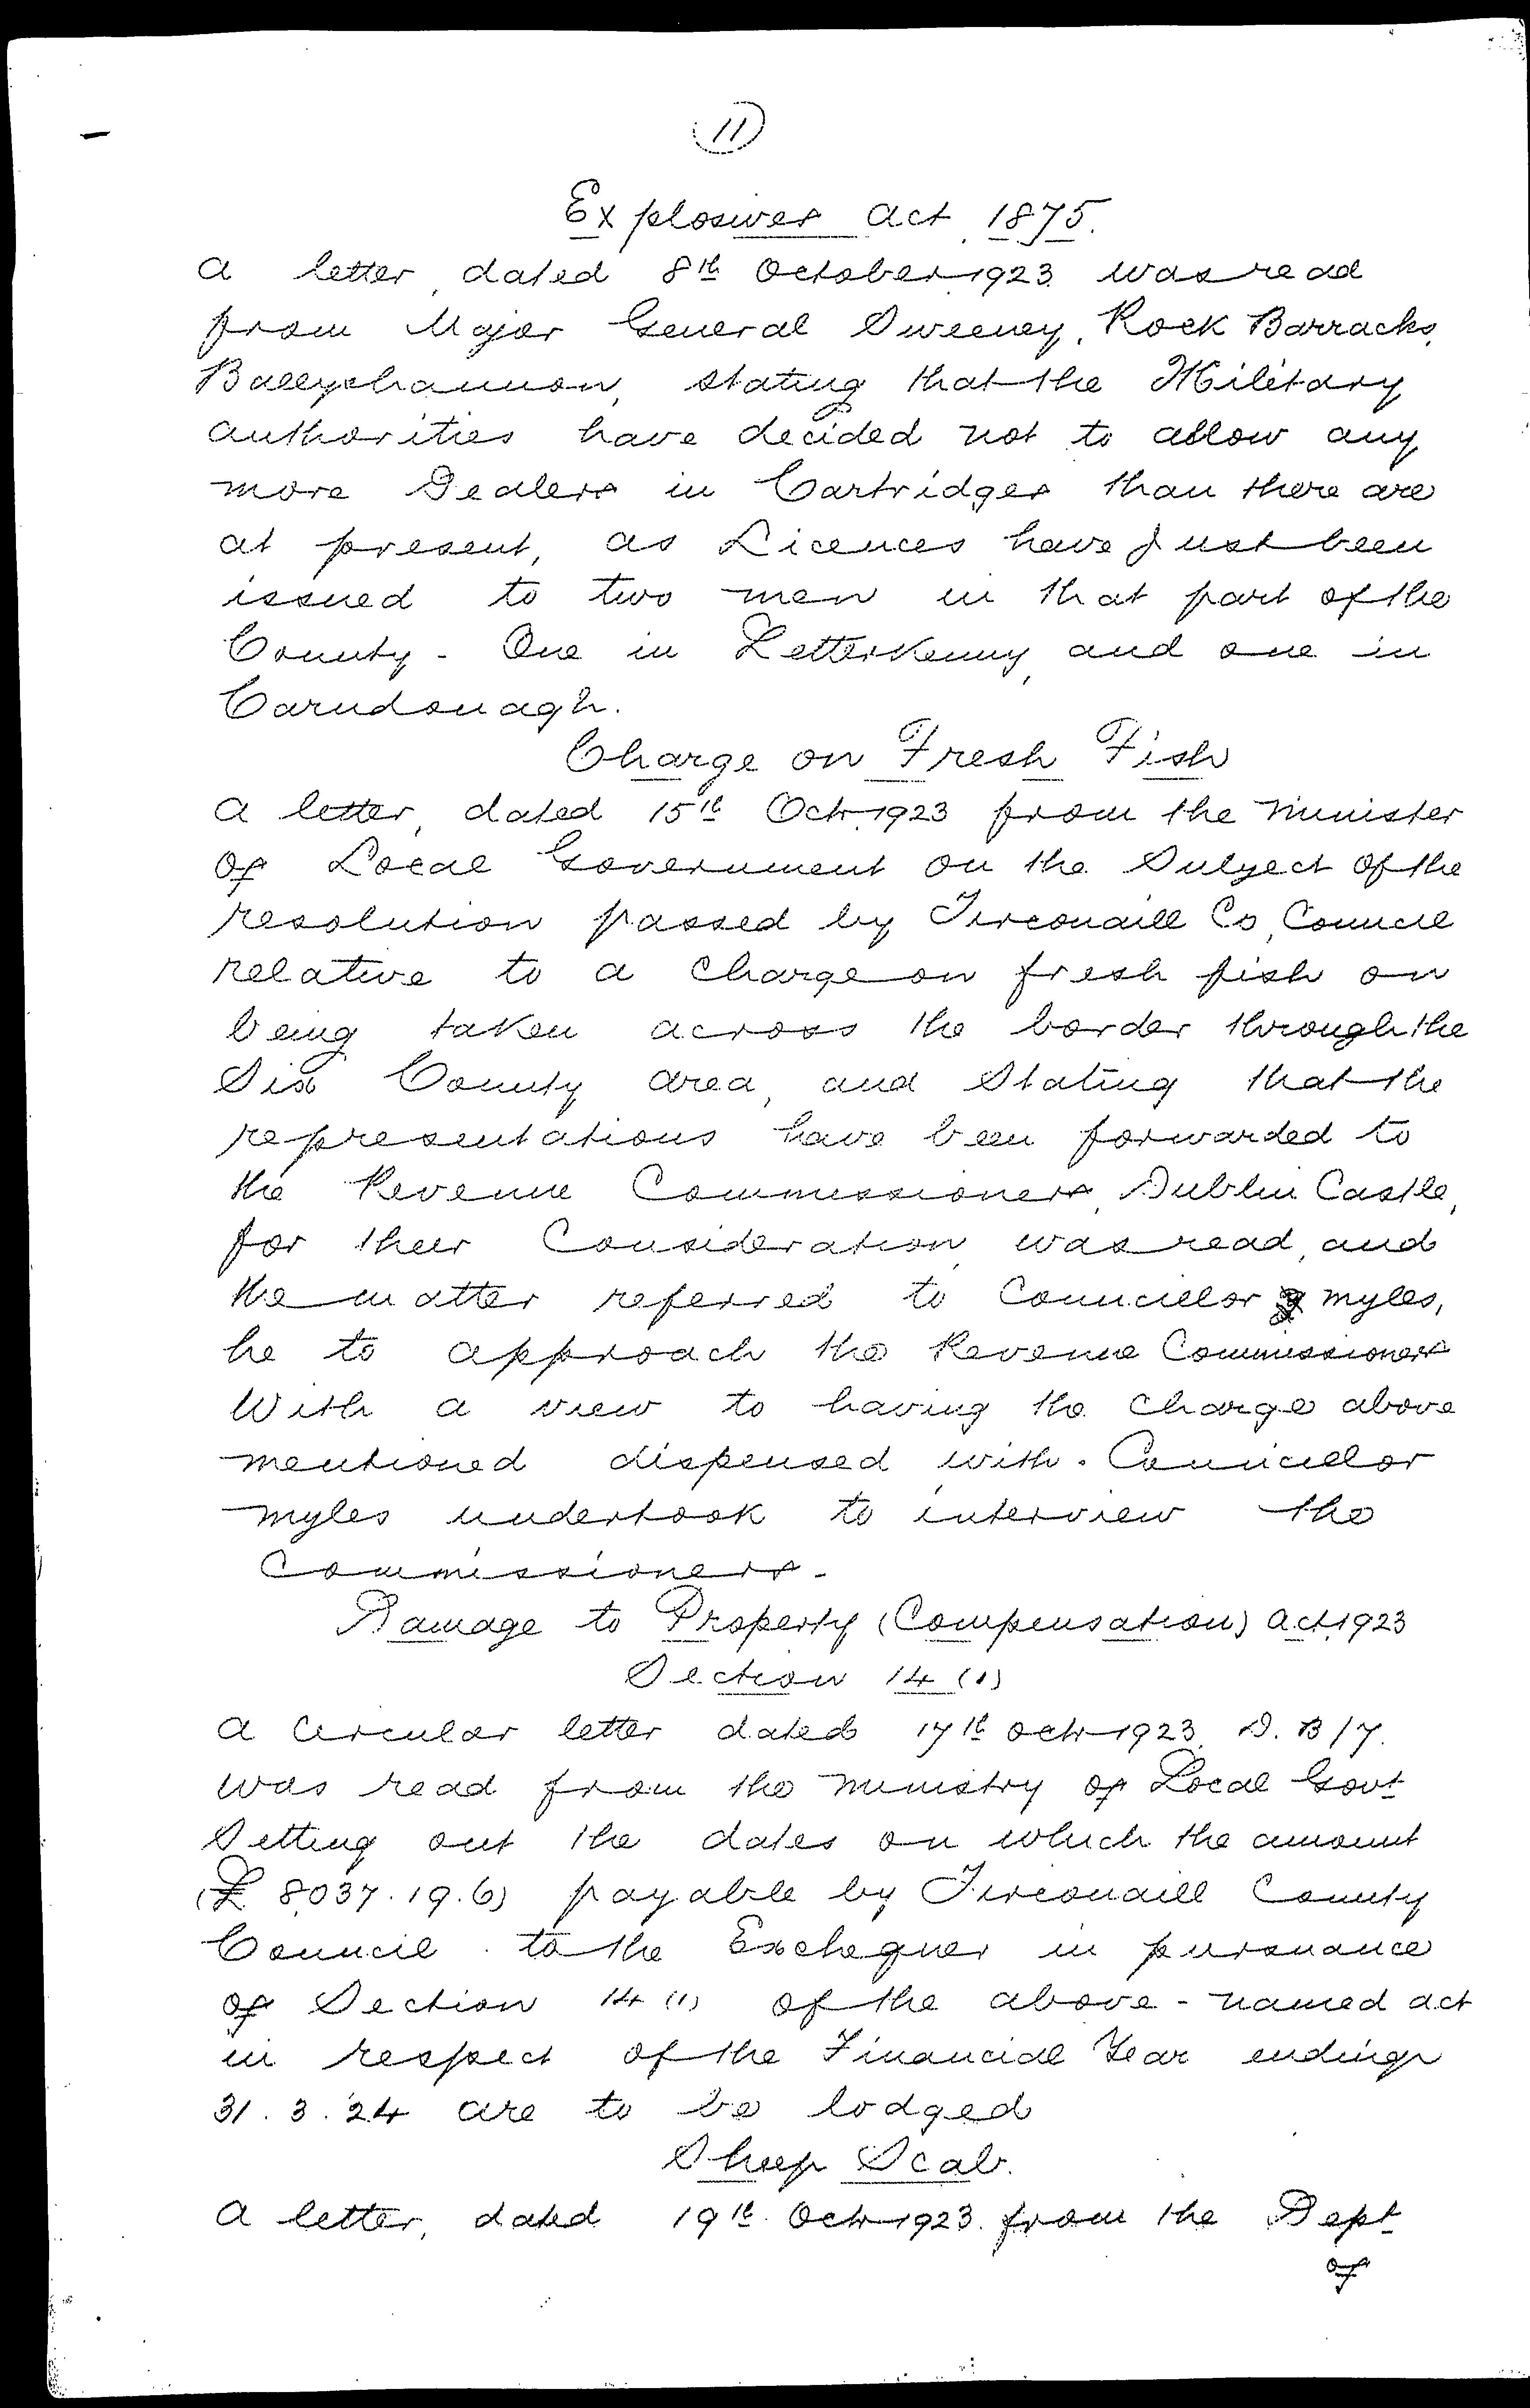 11
Explosives Act 1875.
A letter, dated 8th October 1923 was read
from Major General Sweeney, Rock Barracks,
Ballyshannon, stating that the Military
authorities have decided not to allow any
more Dealers in Cartridges than there are
at present, as Licences have Just been
issued to two men in that part of the
County - One in Letterkenny, and one in
Carndonagh.
Charge on Fresh Fish
A letter, dated 15th Octr. 1923 from the Minister
of Local Government on the Subject of the
resolution passed by Tirconaill Co, Council
relative to a Charge on fresh fish on
being taken across the border through the
Six County area, and Stating that the
representations have been forwarded to
the Revenue Commissioners, Dublin Castle,
for their Consideration, was read, and
the matter referred to Councillor Myles,
he to approach the Revenue Commissioners
With a view to having the Charge above
mentioned dispensed with. Councillor
Myles undertook to interview the
Commissioners.
Damage to Property (Compensation) Act, 1923
Section 14 (1)
A Circular letter dated 17th Octr 1923. D. B/7.
was read from the Ministry of Local Govt
Setting out the dates on which the amount
(£ 8,037.19.6) payable by Tirconaill County
Council to the Exchequer in pursuance
of Section 14 (1) of the above-named act
in respect of the Financial Year ending
31.3.24 are to be lodged
Sheep Scab.
A letter, dated 19th Octr 1923. from the Dept
of